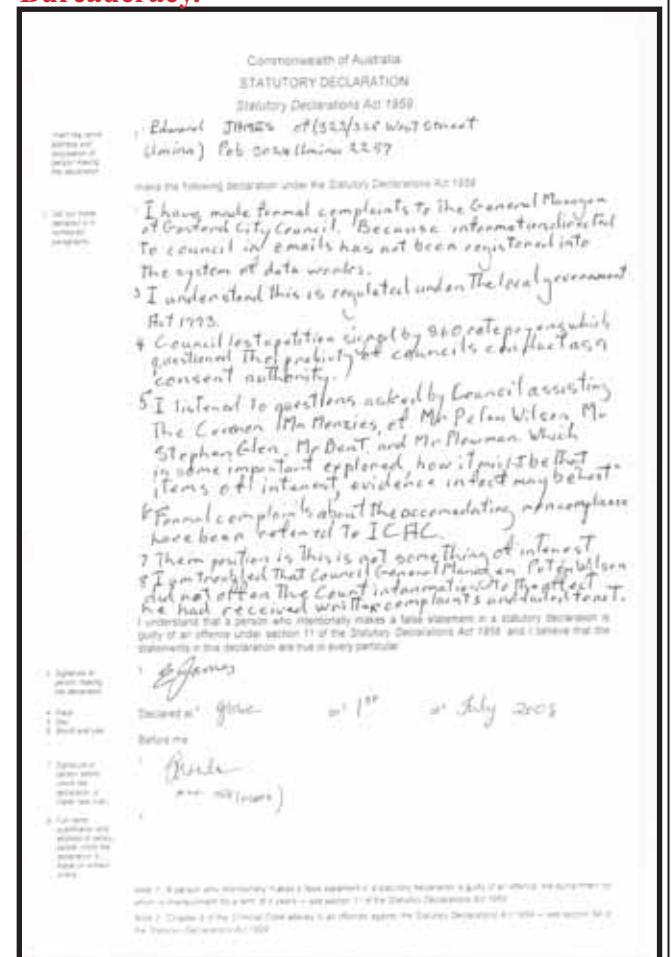 Bureaucracy.
Commonwealth of Australia
STATUTORY DECLARATION
Statutory Declarations Act 1959
1 Edward JAMES of (323/325 West Street
Umina) Pob 3024 Umina 2257
make the following declaration under the Statutory Declarations Act 1959
I having made formal complaints to The General Manager
of Gosford City Council. Because information directed
to council in emails has not been registered into
the system of data works.
3 I understand this is regulated under The local government
Act 1993.
4 Council lost a petition signed by 860 ratepayers which
questioned The probity of councils conduct as a
consent authority.
5 I listened to questions asked by Council assisting
The Coroner Mr Menzies, of Mr Peter Wilson, Mr
Stephen Glen, Mr Bent, and Mr Plowman. Which
in some important explored, how it might be that
items of interest, evidence infact may be lost.
6 Formal complaints about the accomodating noncompliance
have been refered To ICAC.
7 Them position is This is not something of interest
8 I am troubled that Council General Manager Peter Wilson
did not offer The Court information to the effect
he had received written complaints and failed to act.
I understand that a person who intentionally makes a false statement in a statutory declaration is
guilty of an offence under section 11 of the Statutory Declarations Act 1959 and I believe that the
statements in this declaration are true in every particular
3 Signature of
person making
the declaration
E James
4 Place
5 Day
6 Month and year
Declared at glebe on 1st of July 2008
Before me
7 Signature of
person before
whom the
declaration is
made
8 Full name
qualification and
address of person
before whom the
declaration is
made
Note 1 A person who intentionally makes a false statement in a statutory declaration is guilty of an offence, the punishment for
which is imprisonment for a term of 4 years — see section 11 of the Statutory Declarations Act 1959
Note 2 Chapter 2 of the Criminal Code applies to all offences against the Statutory Declarations Act 1959 — see section 5A of
the Statutory Declarations Act 1959